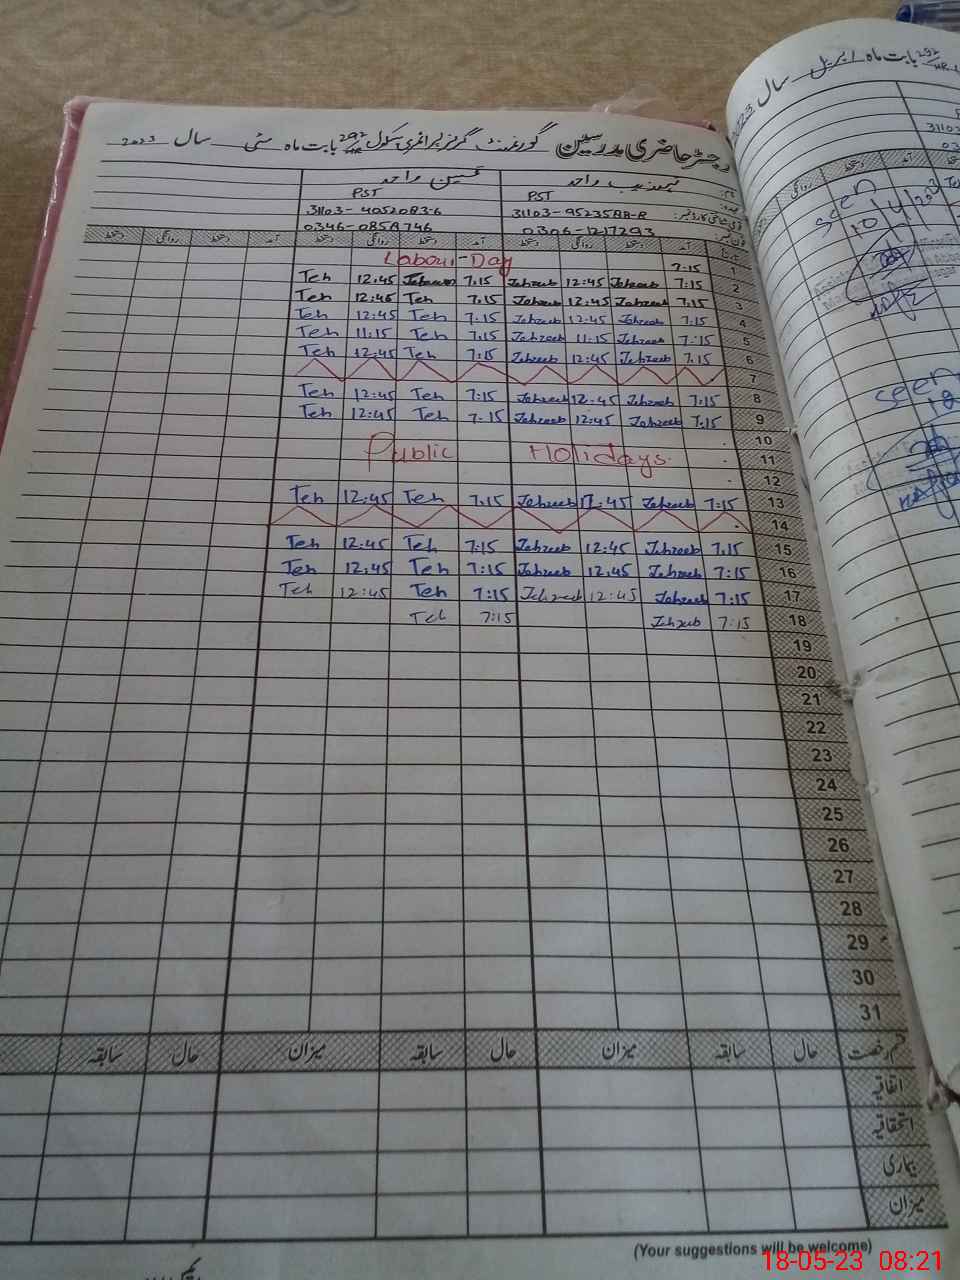 رجسٹر حاضری مدرسین گورنمنٹ گرلز پرائمری سکول 292/HR بابت ماہ مئی سال 2023
تحسین واحد
PST PST
31103-9523588-8 31103-4052083-6
0306-1217293 0346-0858746
آمد دستخط روانگی دستخط آمد دستخط روانگی دستخط آمد دستخط روانگی دستخط
1 7:15 Labour-Day
2 7:15 Jehzeeb 12:45 Jehzeeb 7:15 12:45 Teh
3 7:15 Jehzeeb 12:45 Jehzeeb 7:15 Teh 12:45 Teh
4 7:15 Jehzeeb 12:45 Jehzeeb 7:15 Teh 12:45 Teh
5 7:15 Jehzeeb 11:15 Jehzeeb 7:15 Teh 11:15 Teh
6 7:15 Jehzeeb 12:45 Jehzeeb 7:15 Teh 12:45 Teh
7
8 7:15 Jehzeeb 12:45 Jehzeeb 7:15 Teh 12:45 Teh
9 7:15 Jehzeeb 12:45 Jehzeeb 7:15 Teh 12:45 Teh
10
11 Public Holidays.
12
13 7:15 Jehzeeb 12:45 Jehzeeb 7:15 Teh 12:45 Teh
14
15 7:15 Jehzeeb 12:45 Jehzeeb 7:15 Teh 12:45 Teh
16 7:15 Jehzeeb 12:45 Jehzeeb 7:15 Teh 12:45 Teh
17 7:15 Jehzeeb 12:45 Jehzeeb 7:15 Teh 12:45 Teh
18 7:15 Jehzeeb 7:15 Teh
19
20
21
22
23
24
25
26
27
28
29
30
31
قسم رخصت حال سابقہ میزان حال سابقہ میزان حال سابقہ
اتفاقیہ
استحقاقیہ
بیماری
میزان
(Your suggestions will be welcome)
292/HR بابت ماہ اپریل سال 2023
31103
آمد دستخط روانگی
seen
10/4/2023
seen
18
18-05-23 08:21